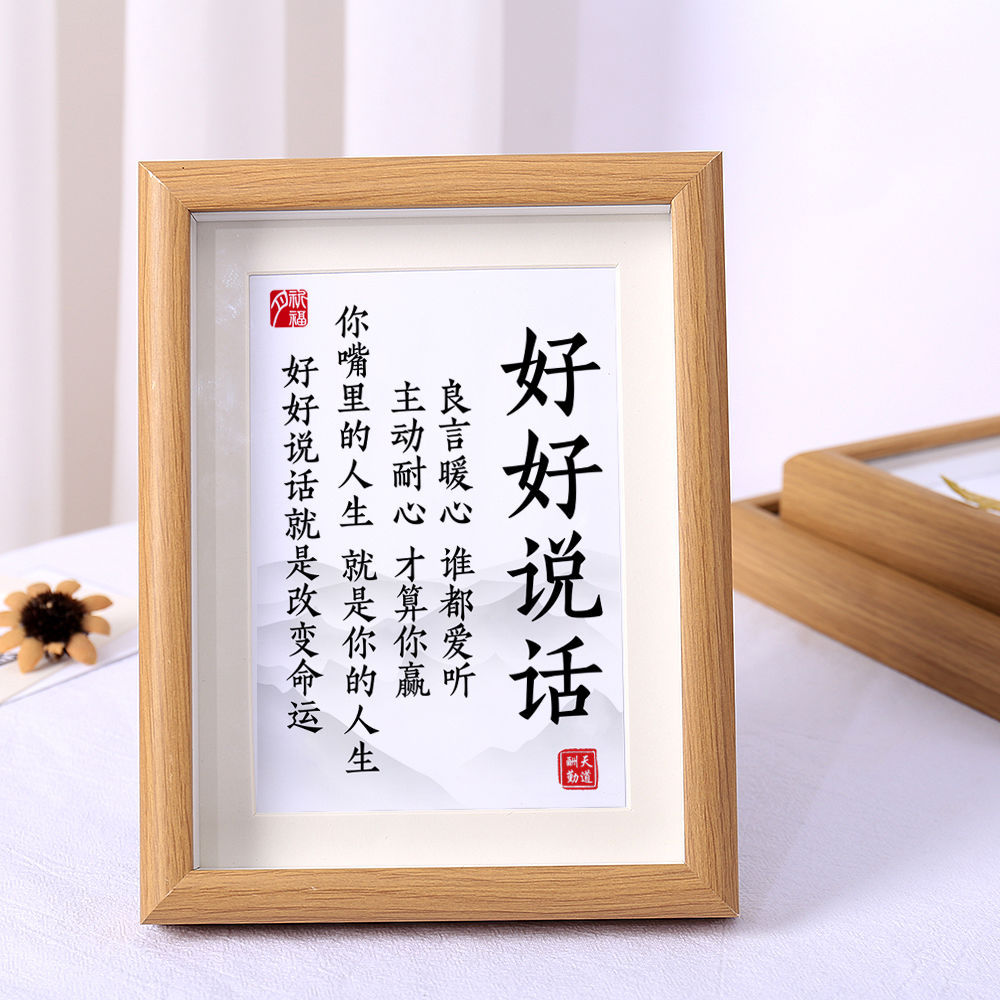 好好说话
天道酬勤
良言暖心 谁都爱听
主动耐心 才算你赢
你嘴里的人生 就是你的人生
好好说话就是改变命运
祈福